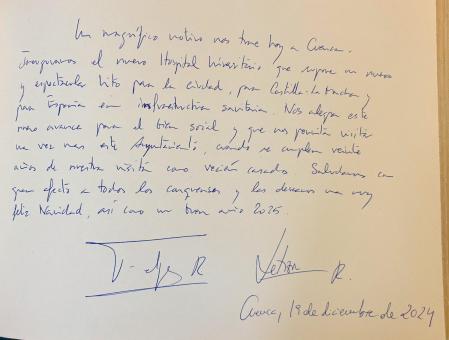 Un magnífico motivo nos trae hoy a Cuenca.
Inauguramos el nuevo Hospital Universitario que supone un nuevo
y espectacular hito para la ciudad, para Castilla-La Mancha y
para España en infraestructura sanitaria. Nos alegra este
nuevo avance para el bien social y que nos permita visitar
una vez más este Ayuntamiento, cuando se cumplen veinte
años de nuestra visita como recién casados. Saludamos con
gran afecto a todos los conquenses y les deseamos una muy
feliz Navidad, así como un buen año 2025.
Felipe R Letizia R.
Cuenca, 19 de diciembre de 2024